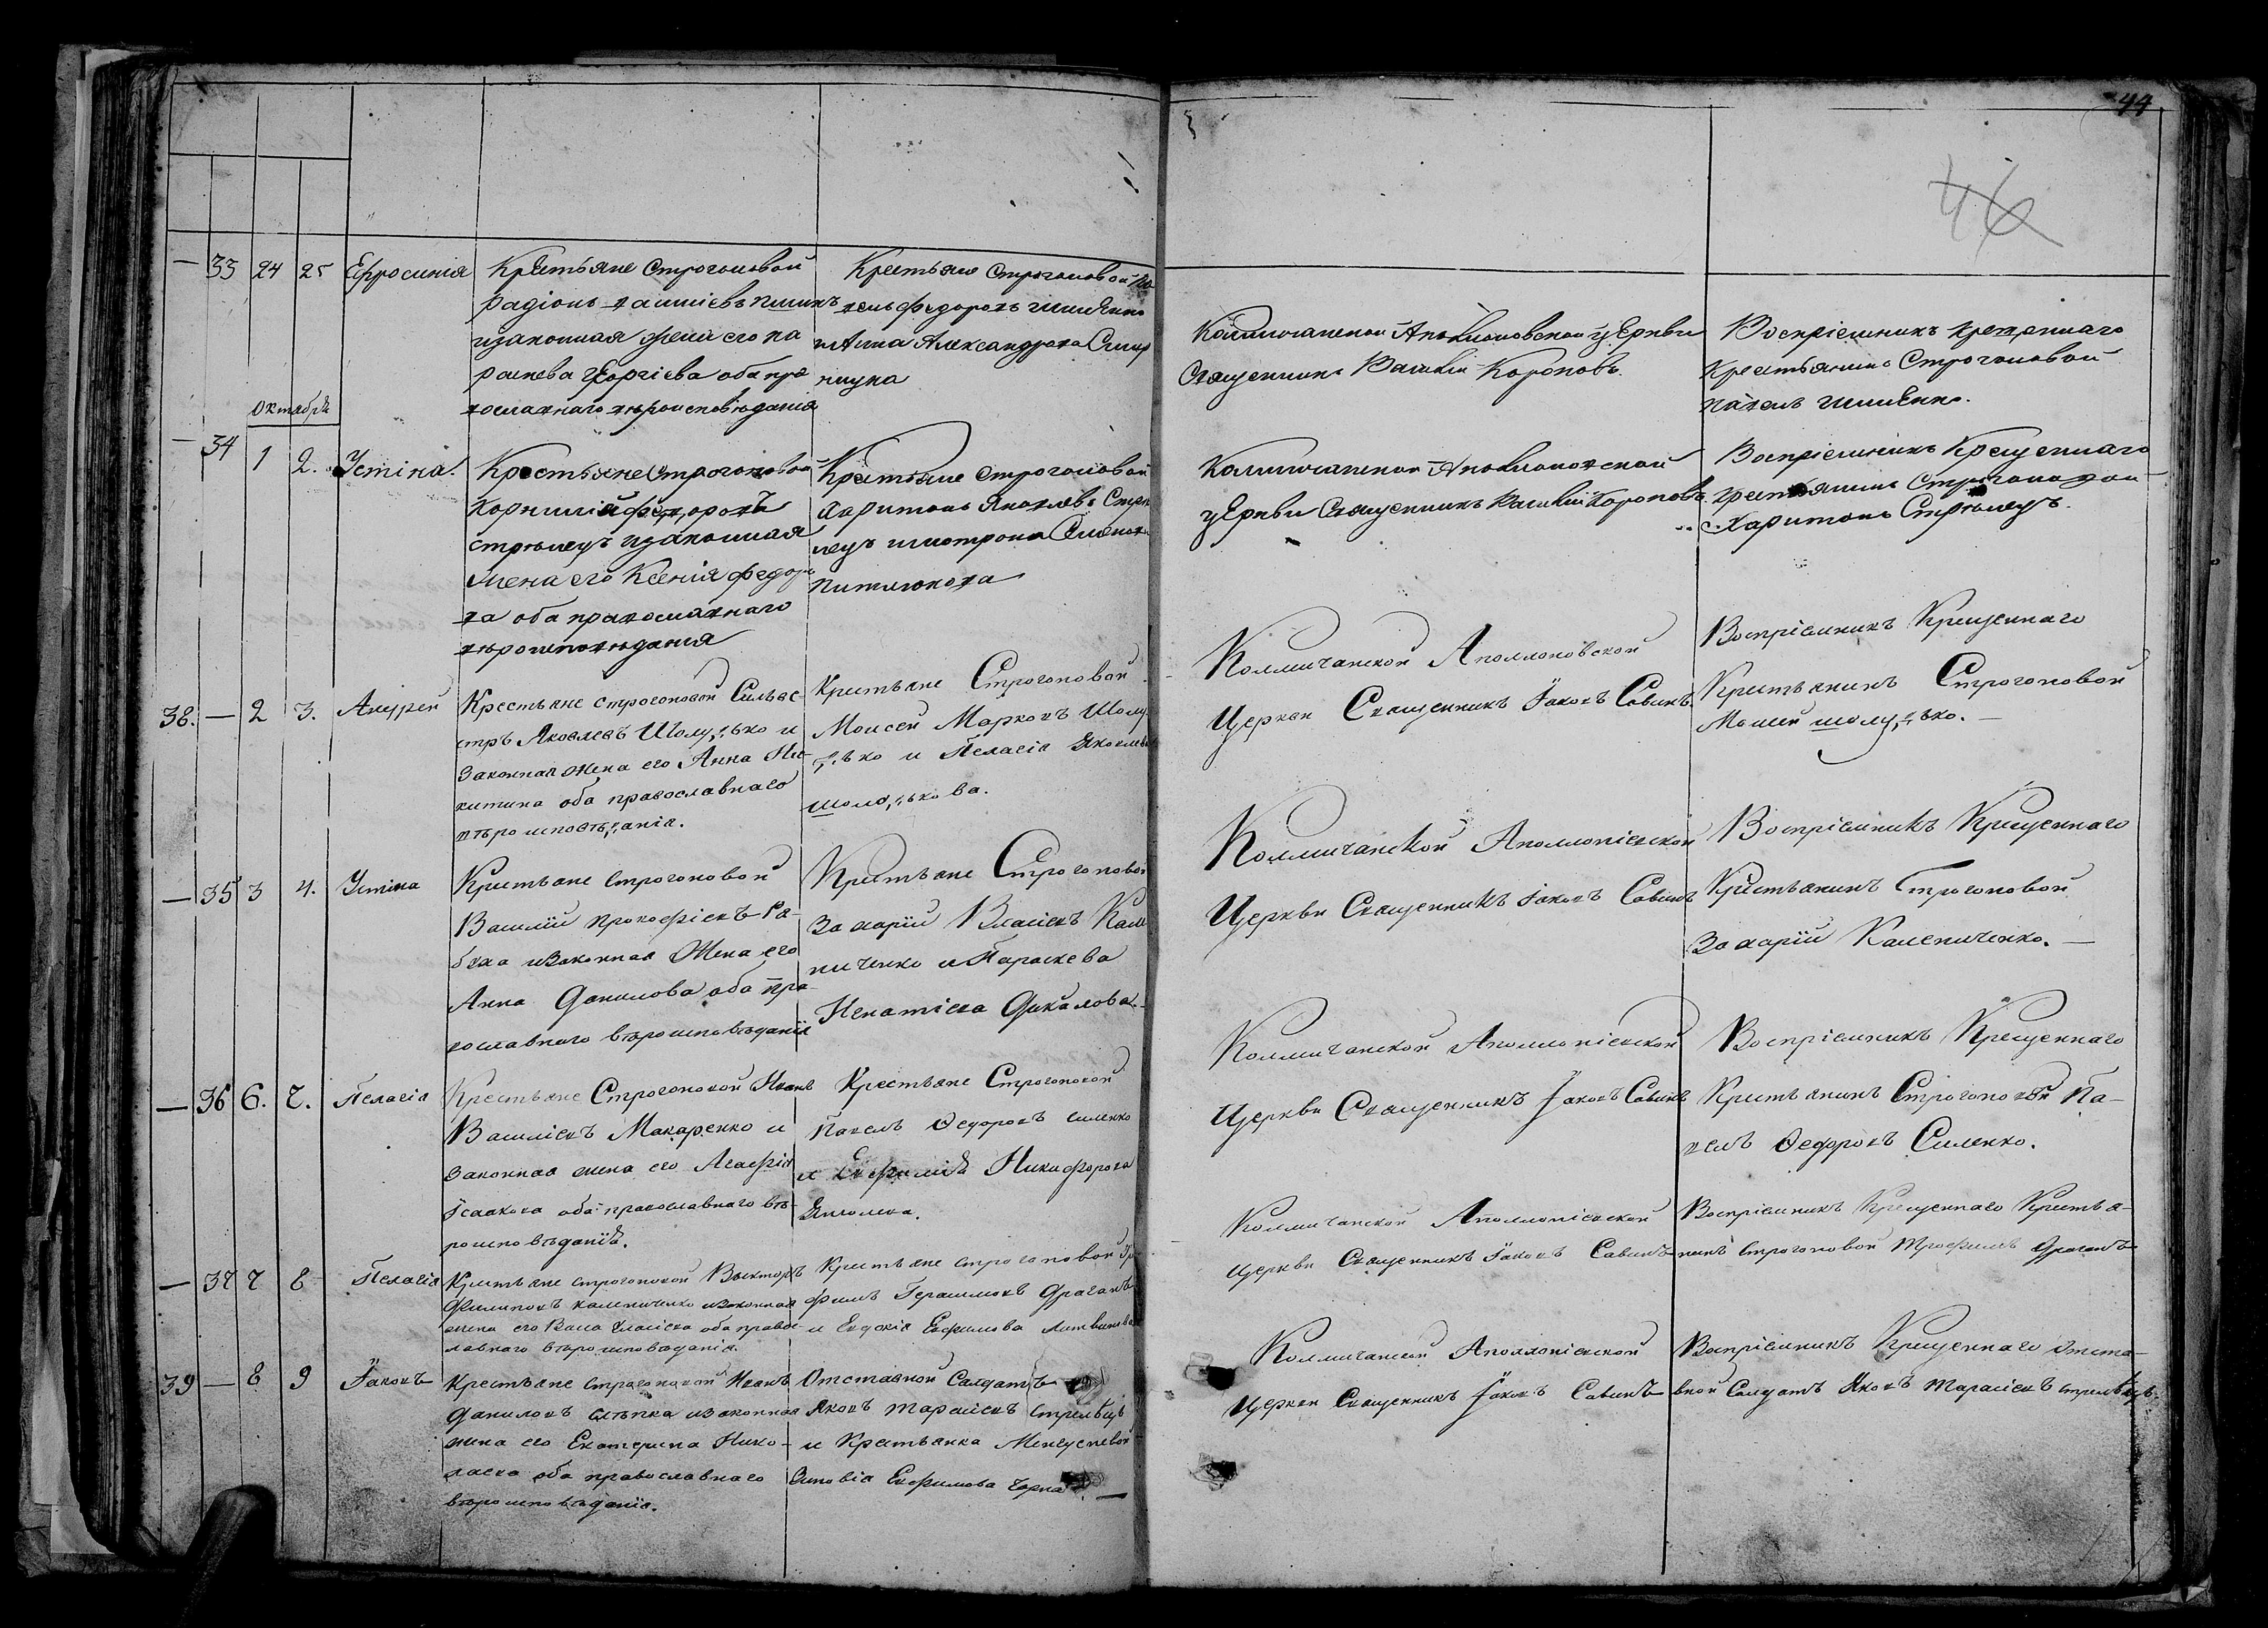 44
46
— 33 24 25 Ефросинія
Крестьяне Строгоновой
Радіонъ
изаконная жена его Па
раскева Георгіева оба пра
вославнаго вѣроисповѣданія
Крестьяне Строгоновой Па
велъ Федоровъ
и Анна Александрова
Священникъ Василій Короповъ
Воспріемникъ крещеннаго
крестьянинъ Строгоновой
Павелъ
Октября
— 34 1 2. Устіна.
Крестьяне Строгоновой
Корнилій Федоровъ
Стрѣлецъ изаконная
жена его Ксенія Федоро
ва оба православнаго
вѣроисповѣданія
Крестьяне Строгоновой
Харитонъ Яковлевъ Стрѣ
лецъ иматрона
церкви Священникъ Василій Короповъ
Воспріемникъ Крещеннаго
крестьянинъ Строгоновой
Харитонъ Стрѣлецъ.
38. — 2 3. Андрей
Крестьяне строгоновой Сильве-
стръ Яковлевъ Шолудько и
Законная жена его Анна Ни-
китина оба православнаго
вѣроисповѣданія.
Крестьяне Строгоновой
Моисей Марковъ Шолу-
дько и Пелагія Яковлева
шолодькова.
Колмичанской Аполлоновской
Церкви Священникъ Іаковъ Савинъ
Воспріемникъ Крещеннаго
Крестьянинъ Строгоновой
Моисей шолудько. —
— 35 3 4. Устіна
Крестьяне Строгоновой
Василій Прокофіевъ Ра-
буха изаконная Жена его
Анна Данилова оба пра-
вославнаго вѣроисповѣданія
Крестьяне Строгоновой
Захарій Власіевъ Кале
ниченко и Параскева
Игнатіева Дикалова. —
Колмичанской Аполлоніевской
Церкви Священникъ Іаковъ Савинъ
Воспріемникъ Крещеннаго
Крестьянинъ Строгоновой
Захарій Калениченко. —
— 36 6. 7. Пелагія
Крестьяне Строгоновой Иванъ
Василіевъ Макаренко и
Законная жена его Агафія
Ісаакова оба православнаго вѣ-
роисповѣданія.
Крестьяне Строгоновой
Павелъ Ѳедоровъ силенко
и Евфимія Никифорова
Колмичанской Аполлоніевской
Церкви Священникъ Іаковъ Савинъ
Воспріемникъ Крещеннаго
Крестьянинъ Строгоновой Па-
велъ Ѳедоровъ Силенко.
— 37 7 8 Пелагія
Крестьяне строгоновой Викторъ
Филиповъ калениченко изаконная
жена его Васа Власіева оба правос-
лавнаго вѣроисповѣданія.
Крестьяне строгоновой Тро
фимъ Герасимовъ Драганъ
и Евдокія Евфимова Литвинова
Колмичанской Аполлоніевской
Церкви Священникъ Іаковъ Савинъ
Воспріемникъ Крещеннаго Крестья-
нинъ Строгоновой Трофимъ Драганъ
39 — 8 9 Іаковъ
Крестьяне Строгоновой Иванъ
Даниловъ слѣпка изаконная
жена его Екатерина Нико-
лаева оба православнаго
вѣроисповѣданія.
Отставной Салдатъ
Яковъ Тарасіевъ Стрилѣцъ
и Крестьянка
Зиновія Евфимова
Колмичанской Аполлоніевской
Церкви Священникъ Іаковъ Савинъ
Воспріемникъ Крещеннаго отста-
вной Салдатъ Яковъ Тарасіевъ Стрилѣцъ.